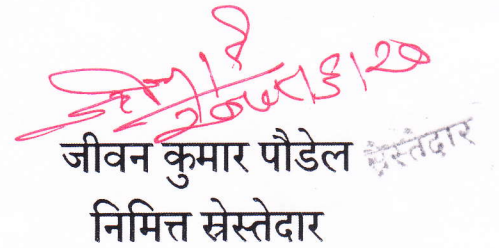 जीवन कुमार पौडेल स्रेस्तेदार
निमित्त स्रेस्तेदार